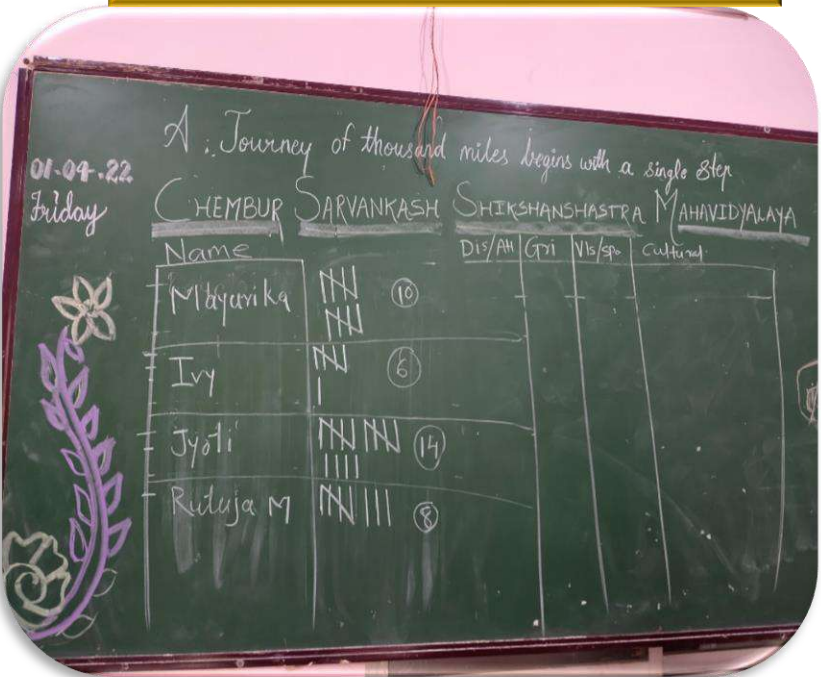 A. Journey of thousand miles begins with a single step
01-04-22
Friday
CHEMBUR SARVANKASH SHIKSHANSHASTRA MAHAVIDYALAYA
Name Dis/Att Gri Vls/spo Cultural
Mayurika 10
Ivy 6
Jyoti 14
Rutuja M 8